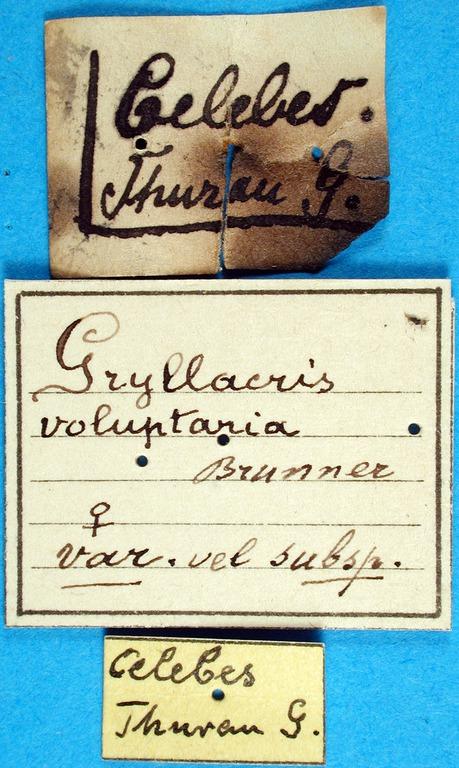 Celebes.
Thurau G.
Gryllacris
voluptaria
Brunner
♀
var. vel subsp.
Celebes
Thurau G.